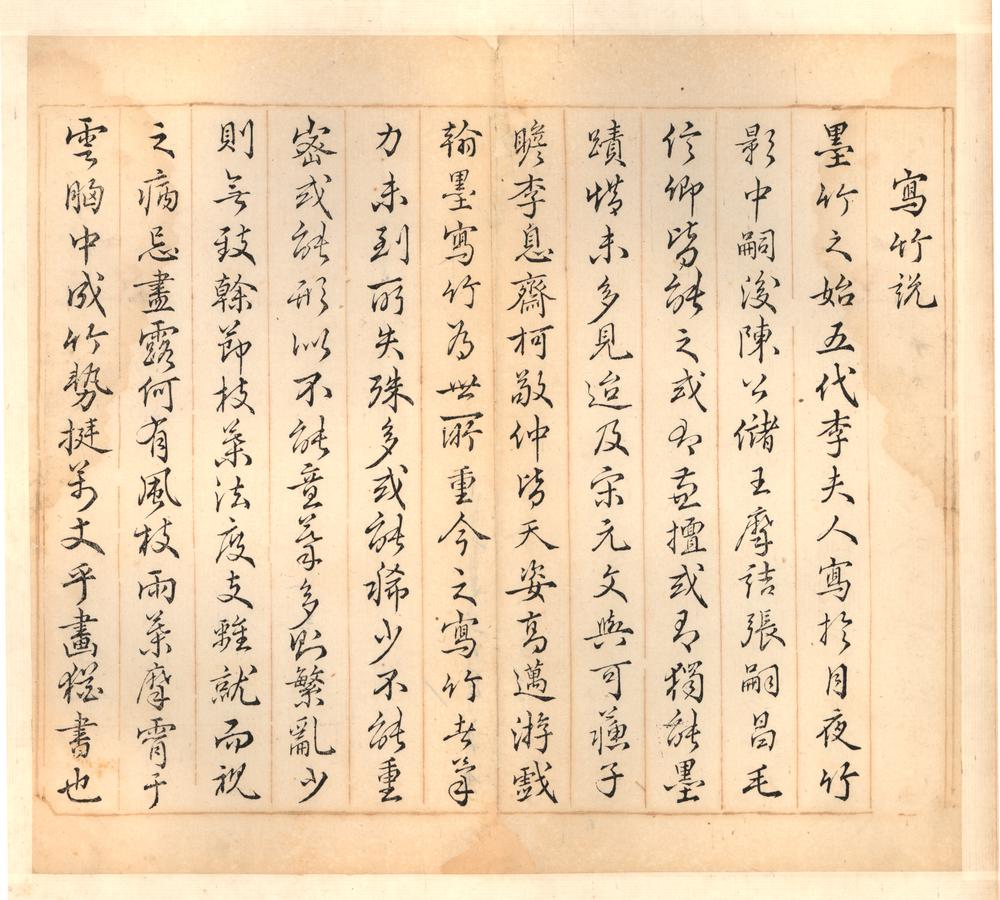 寫竹說
墨竹之始五代李夫人寫於月夜竹
影中嗣後陳公儲王摩詰張嗣昌毛
信卿皆能之或有兼擅或有獨能墨
蹟惜未多見迨及宋元文與可蘇子
瞻李息齋柯敬仲皆天姿高邁游戲
翰墨寫竹為世所重今之寫竹者筆
力未到所失殊多或能稀少不能重
密或能形似不能意筆多則繁亂少
則無致幹節枝葉法度支離就而視
之病忌盡露何有風枝雨葉摩霄干
雲胸中成竹勢挺萬丈乎畫猶書也